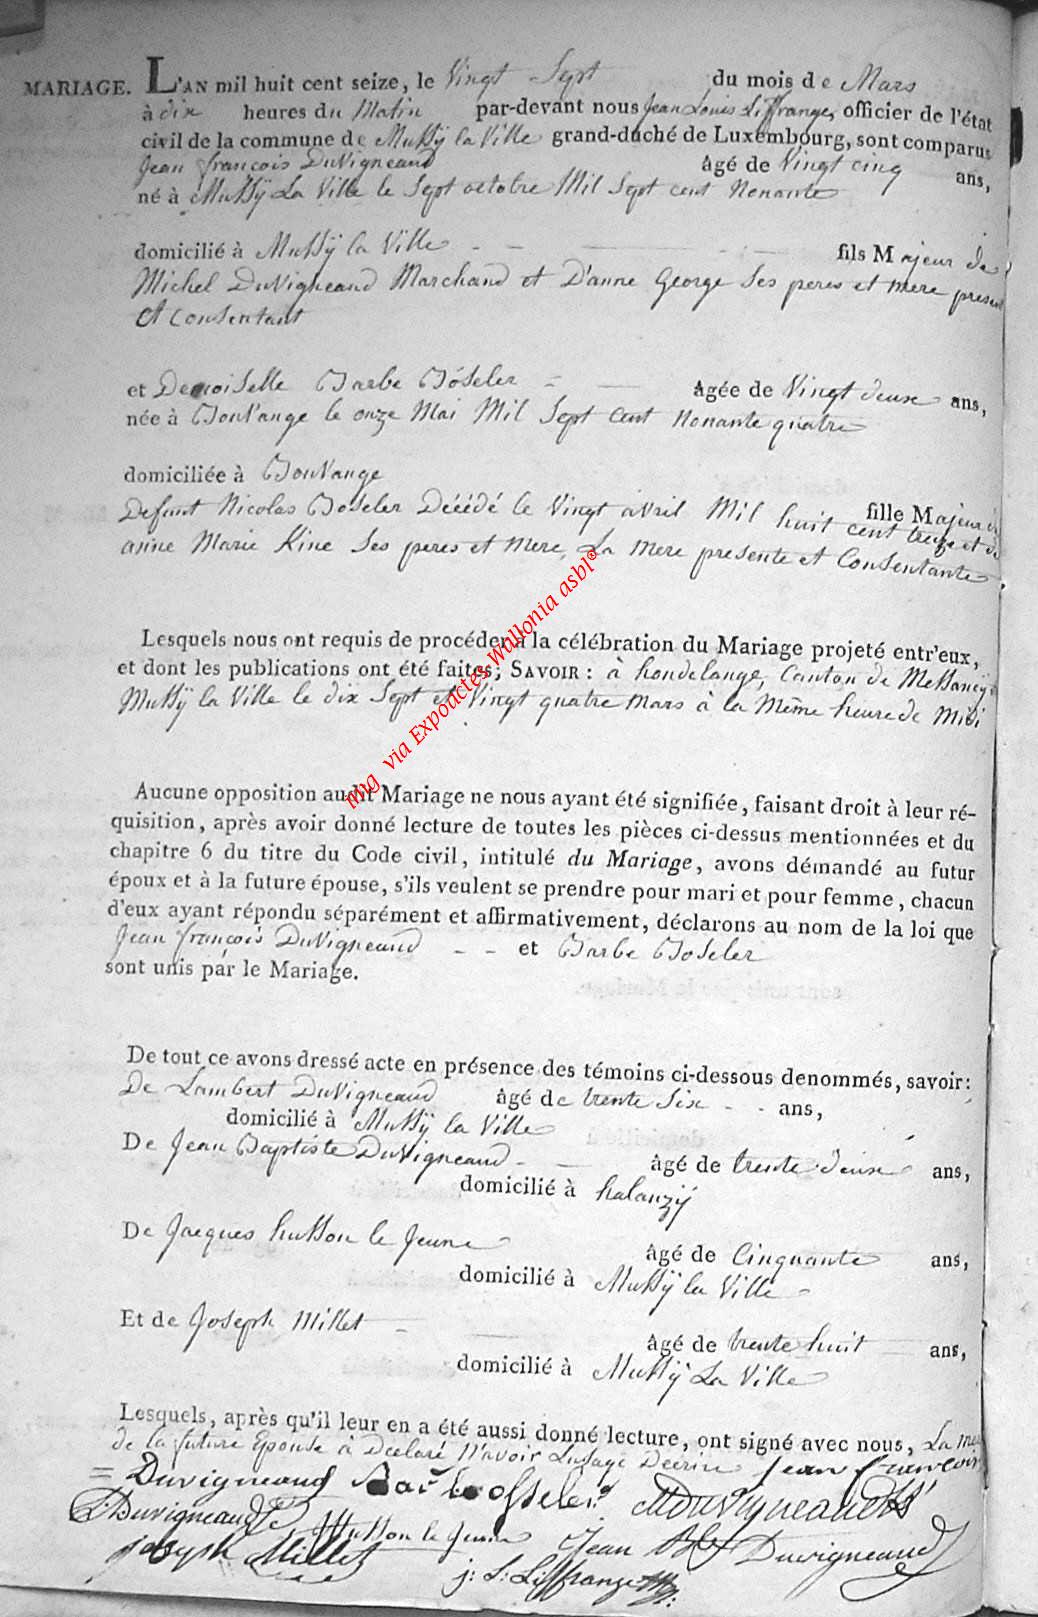 MARIAGE. L'AN mil huit cent seize, le Vingt Sept du mois de Mars
à dix heures du Matin par-devant nous Jean Louis Liffrange, officier de l'état
civil de la commune de Mussÿ la Ville grand-duché de Luxembourg, sont comparus
Jean françois DuVigneaud âgé de Vingt cinq ans,
né à Mussÿ La Ville le Sept octobre Mil Sept cent Nonante
domicilié à Mussÿ la Ville - - fils Majeur de
Michel DuVigneaud Marchand et D'anne George Ses peres et mere present
et Consentant
et Demoiselle Barbe Bóseler = âgée de Vingt deuse ans,
née à Bouvange le onze Mai Mil Sept cent Nonante quatre
domiciliée à Bouvange
fille Majeur de
Defunt Nicolas Boseler Décédé le Vingt avril Mil huit cent treize et de
anne Marie Kine Ses peres et Mere, La Mere presente et Consentante.
Lesquels nous ont requis de procéder à la célébration du Mariage projeté entr'eux,
et dont les publications ont été faites; SAVOIR : à hondelange, Canton de Messancÿ
Mussÿ la Ville le dix Sept et Vingt quatre Mars à la Même heure de Midi
Aucune opposition audit Mariage ne nous ayant été signifiée, faisant droit à leur ré-
quisition, après avoir donné lecture de toutes les pièces ci-dessus mentionnées et du
chapitre 6 du titre du Code civil, intitulé du Mariage, avons démandé au futur
époux et à la future épouse, s'ils veulent se prendre pour mari et pour femme, chacun
d'eux ayant répondu séparément et affirmativement, déclarons au nom de la loi que
Jean françois DuVigneaud - - et Barbe Boseler
sont unis par le Mariage.
De tout ce avons dressé acte en présence des témoins ci-dessous denommés, savoir:
De Lambert DuVigneaud âgé de trente Six - - ans,
domicilié à Mussÿ la Ville
De Jean Baptiste DuVigneaud - âgé de trente deuse ans,
domicilié à halanzÿ
De Jacques husson le Jeune âgé de Cinquante ans,
domicilié à Mussÿ la Ville -
Et de Joseph Millet - âgé de trente huit ans,
domicilié à Mussÿ La Ville
Lesquels, après qu'il leur en a été aussi donné lecture, ont signé avec nous, La mere
de la future Epouse à Declaré N'avoir Lusage Decrire Jean francois
= Duvigneaud Barbe Osseler MDuvigneaud
L: Duvigneaud husson le jeune Jean Bte Duvigneaud
joseph Millet j: L: Liffrange
mg via Expoactes Wallonia asbl©